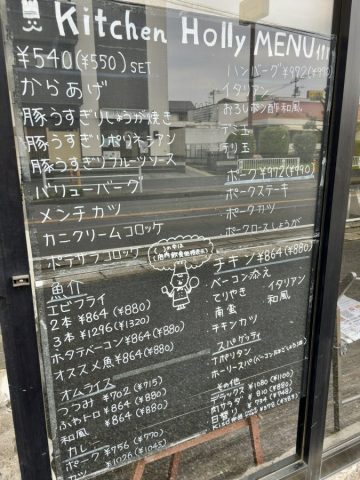 Kitchen Holly MENU
¥540(¥550) SET
からあげ
豚うすぎりしょうが焼き
豚うすぎりポリネシアン
豚うすぎりフルーツソース
バリューバーグ
メンチカツ
カニクリームコロッケ
ポテサラコロッケ
魚介
エビフライ
2本 ¥864(¥880)
3本 ¥1296(¥1320)
ホタテベーコン¥864(¥880)
オススメ魚¥864(¥880)
オムライス
つつみ ¥702(¥715)
ふわトロ ¥864(¥880)
和風 ¥864(¥880)
カレー
ポーク ¥756(¥770)
カツ
ハンバーグ¥972(¥990)
イタリアン
おろしポン酢和風
デミ玉
テリ玉
ポーク¥972(¥990)
ポークステーキ
ポークカツ
ポークロースしょうが
( )の中は
店内飲食価格表示
チキン¥864(¥880)
ベーコン添え
てりやき イタリアン
南蛮 和風
チキンカツ
スパゲッティ
ナポリタン
ホーリースパ
その他
デラックス ¥1080(¥1100)
肉サラダ ¥810(¥880)
日替り